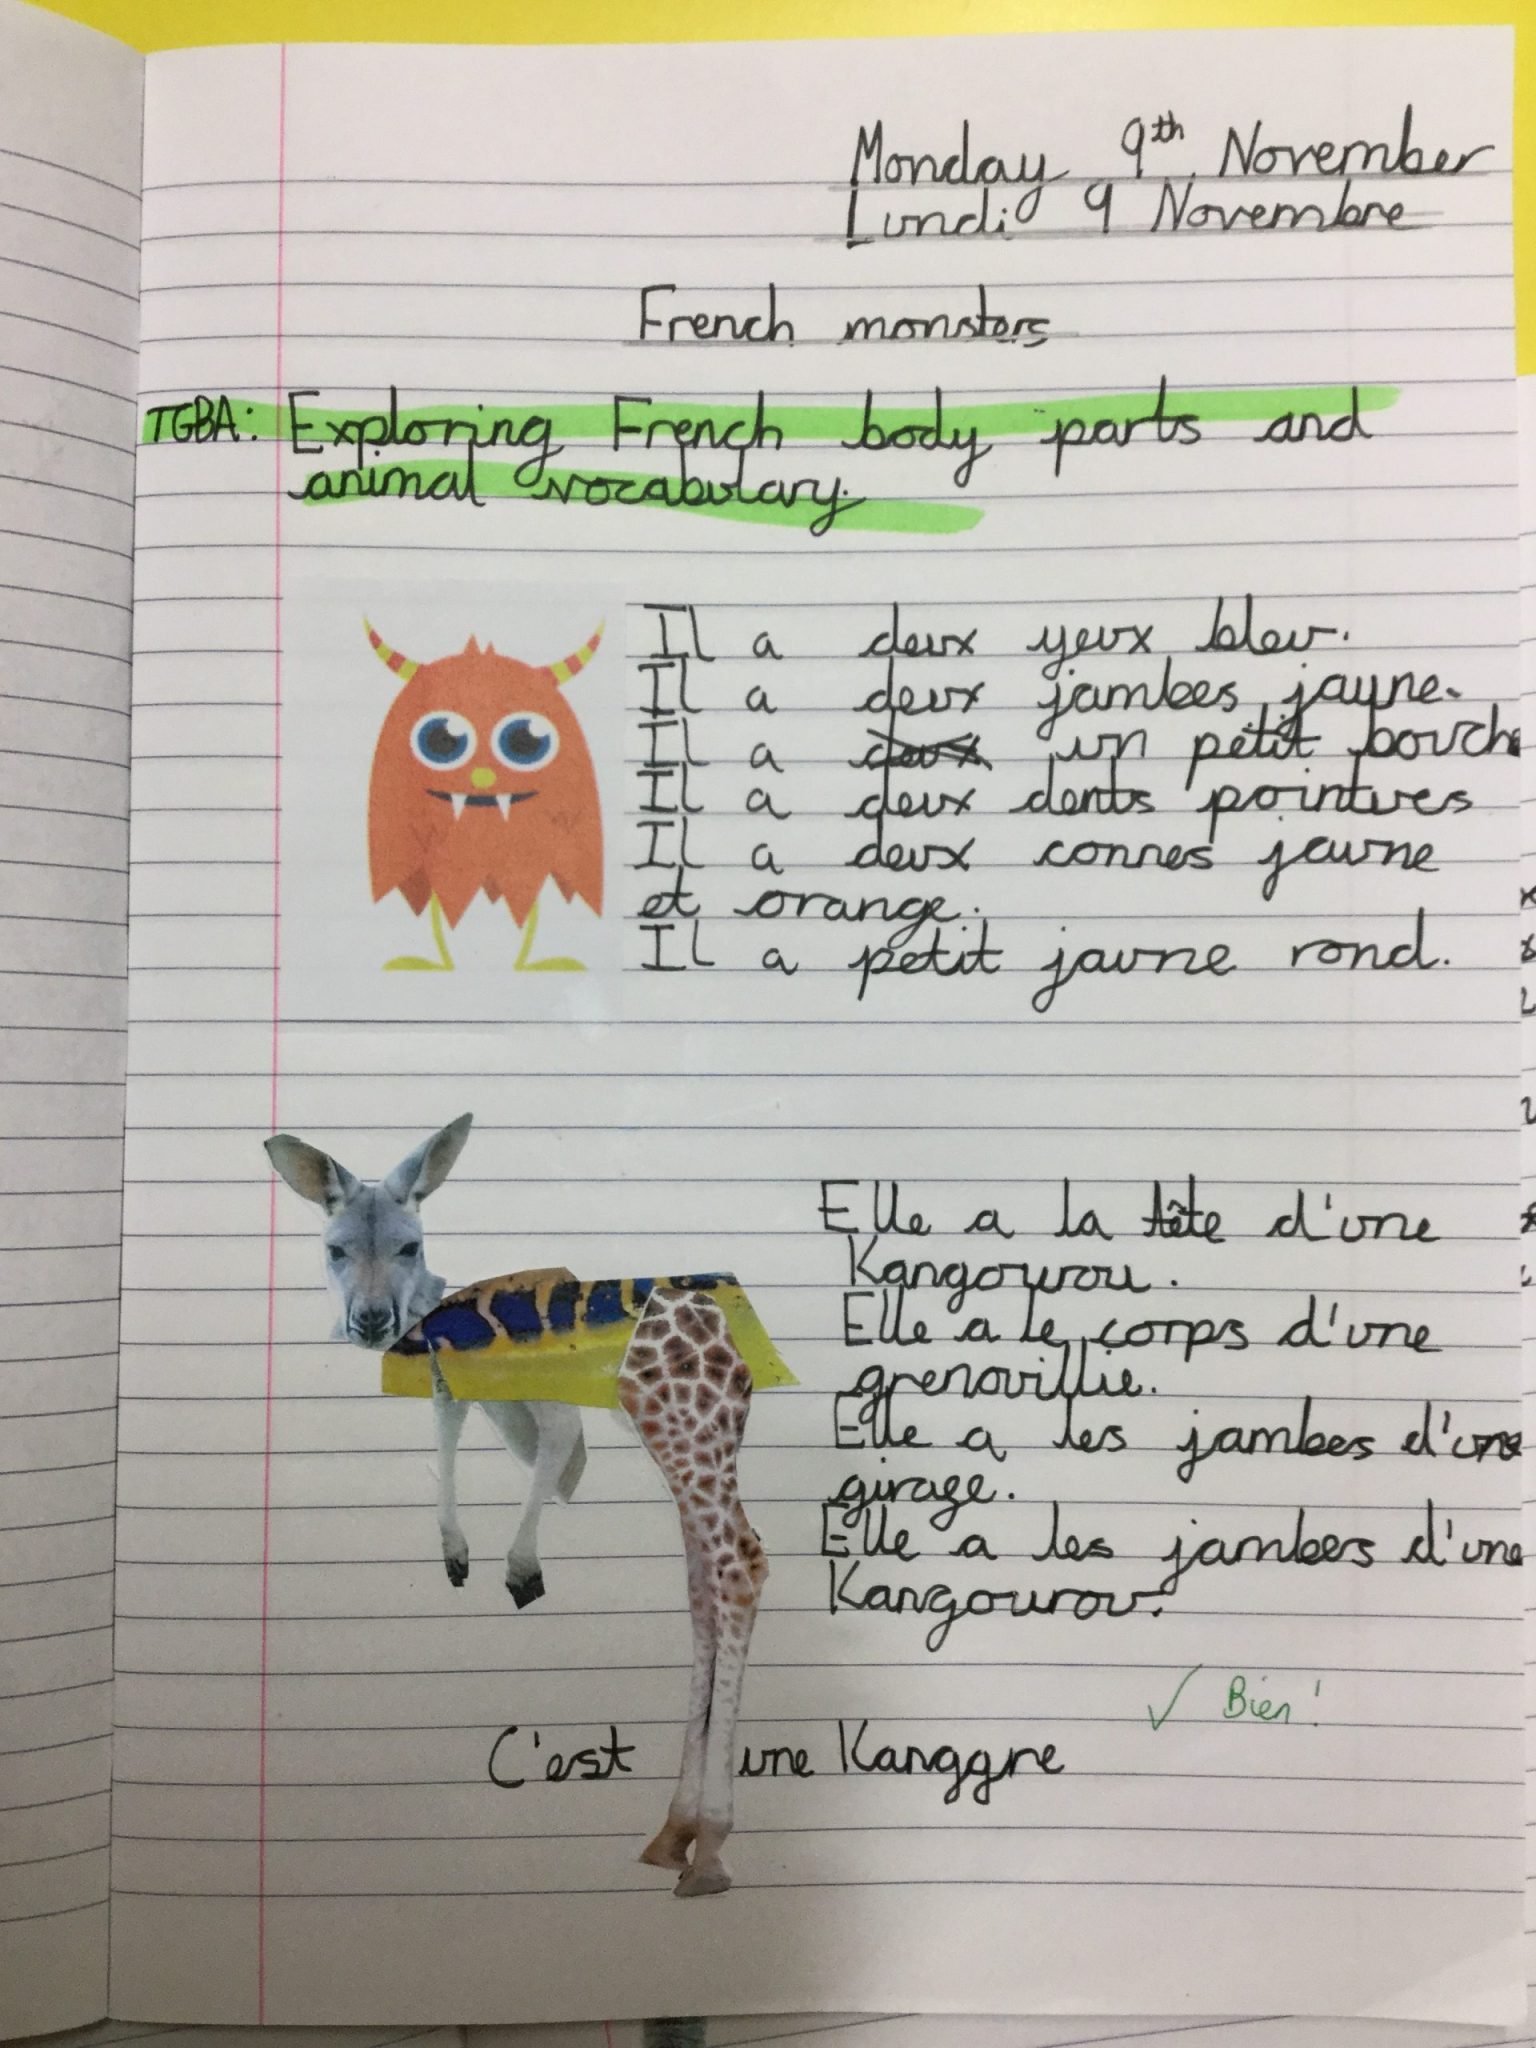 Monday 9th November
Lundi 9 Novembre
French monsters
TGBA: Exploring French body parts and
animal vocabulary.
Il a deux yeux bleu.
Il a deux jambes jaune.
Il a deux un petit bouche
Il a deux dents pointues
Il a deux connes jaune
et orange.
Il a petit jaune rond.
Elle a la tête d'une
Kangourou.
Elle a le corps d'une
grenouillie.
Elle a les jambes d'une
girage.
Elle a les jambes d'une
Kangourou.
✓ Bien!
C'est une Kanggre